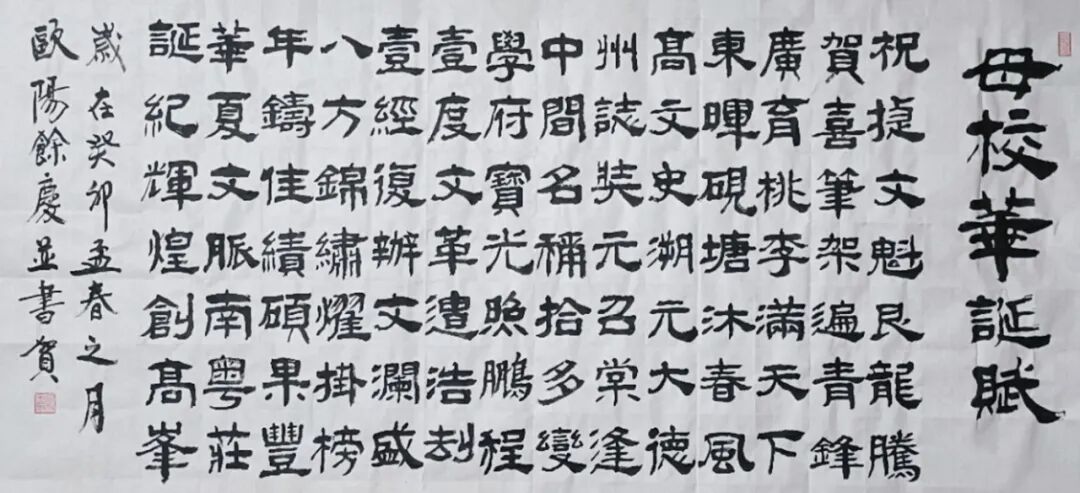 母校華誕賦
祝捷文魁艮龍騰
賀喜筆架遍青鋒
廣育桃李滿天下
東暉硯塘沐春風
高文史溯元大德
州誌奘元召棠逢
中間名稱拾多變
學府寶光照鵬程
壹度文革遭浩劫
壹經復辦文瀾盛
八方錦繡耀掛榜
年鑄佳績碩果豐
華夏文脈南粵莊
誕紀輝煌創高峯
歲在癸卯孟春之月
歐陽餘慶並書賀